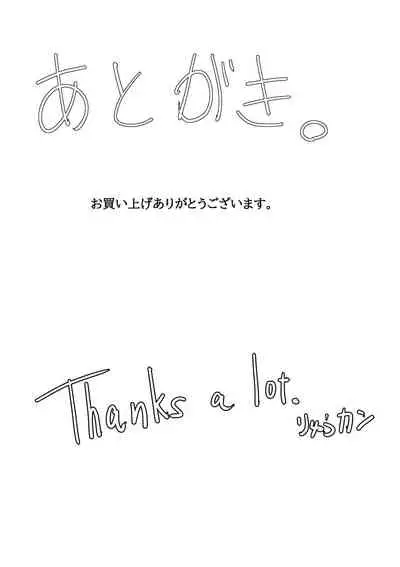 あとがき。
お買い上げありがとうございます。
Thanks a lot.
りゅうカン